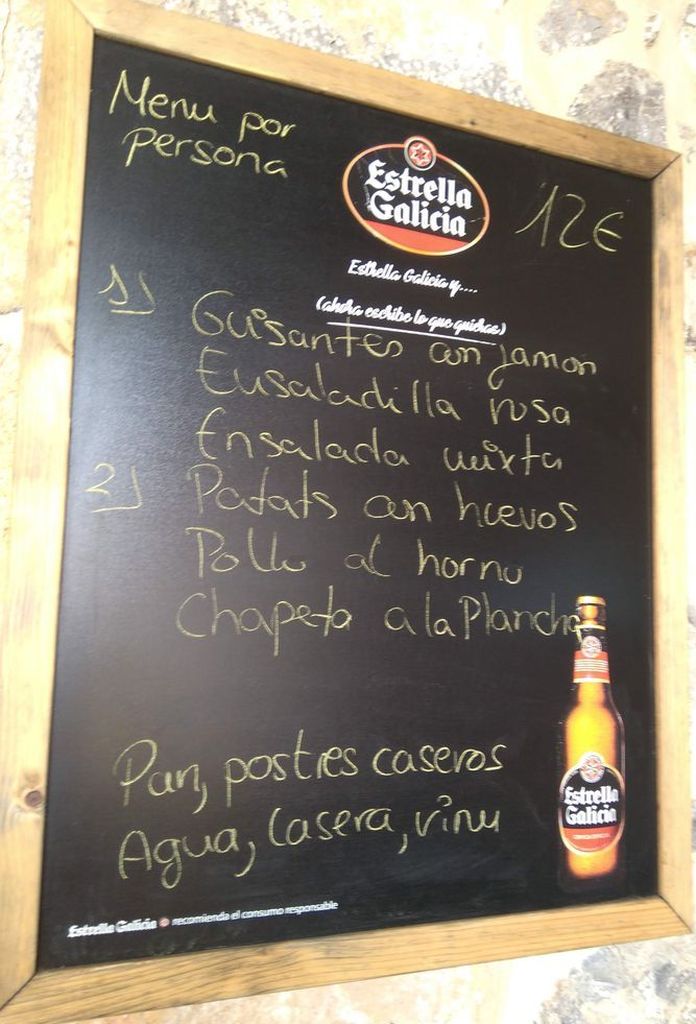 Menu por
persona
Estrella
Galicia
12€
Estrella Galicia y....
(ahora escribe lo que quieras)
1) Guisantes con jamon
Ensaladilla rusa
Ensalada mixta
2) Patats con huevos
Pollo al horno
Chapeta a la Plancha
Pan, postres caseros
Agua, Casera, vino
Estrella
Galicia
Estrella Galicia recomienda el consumo responsable